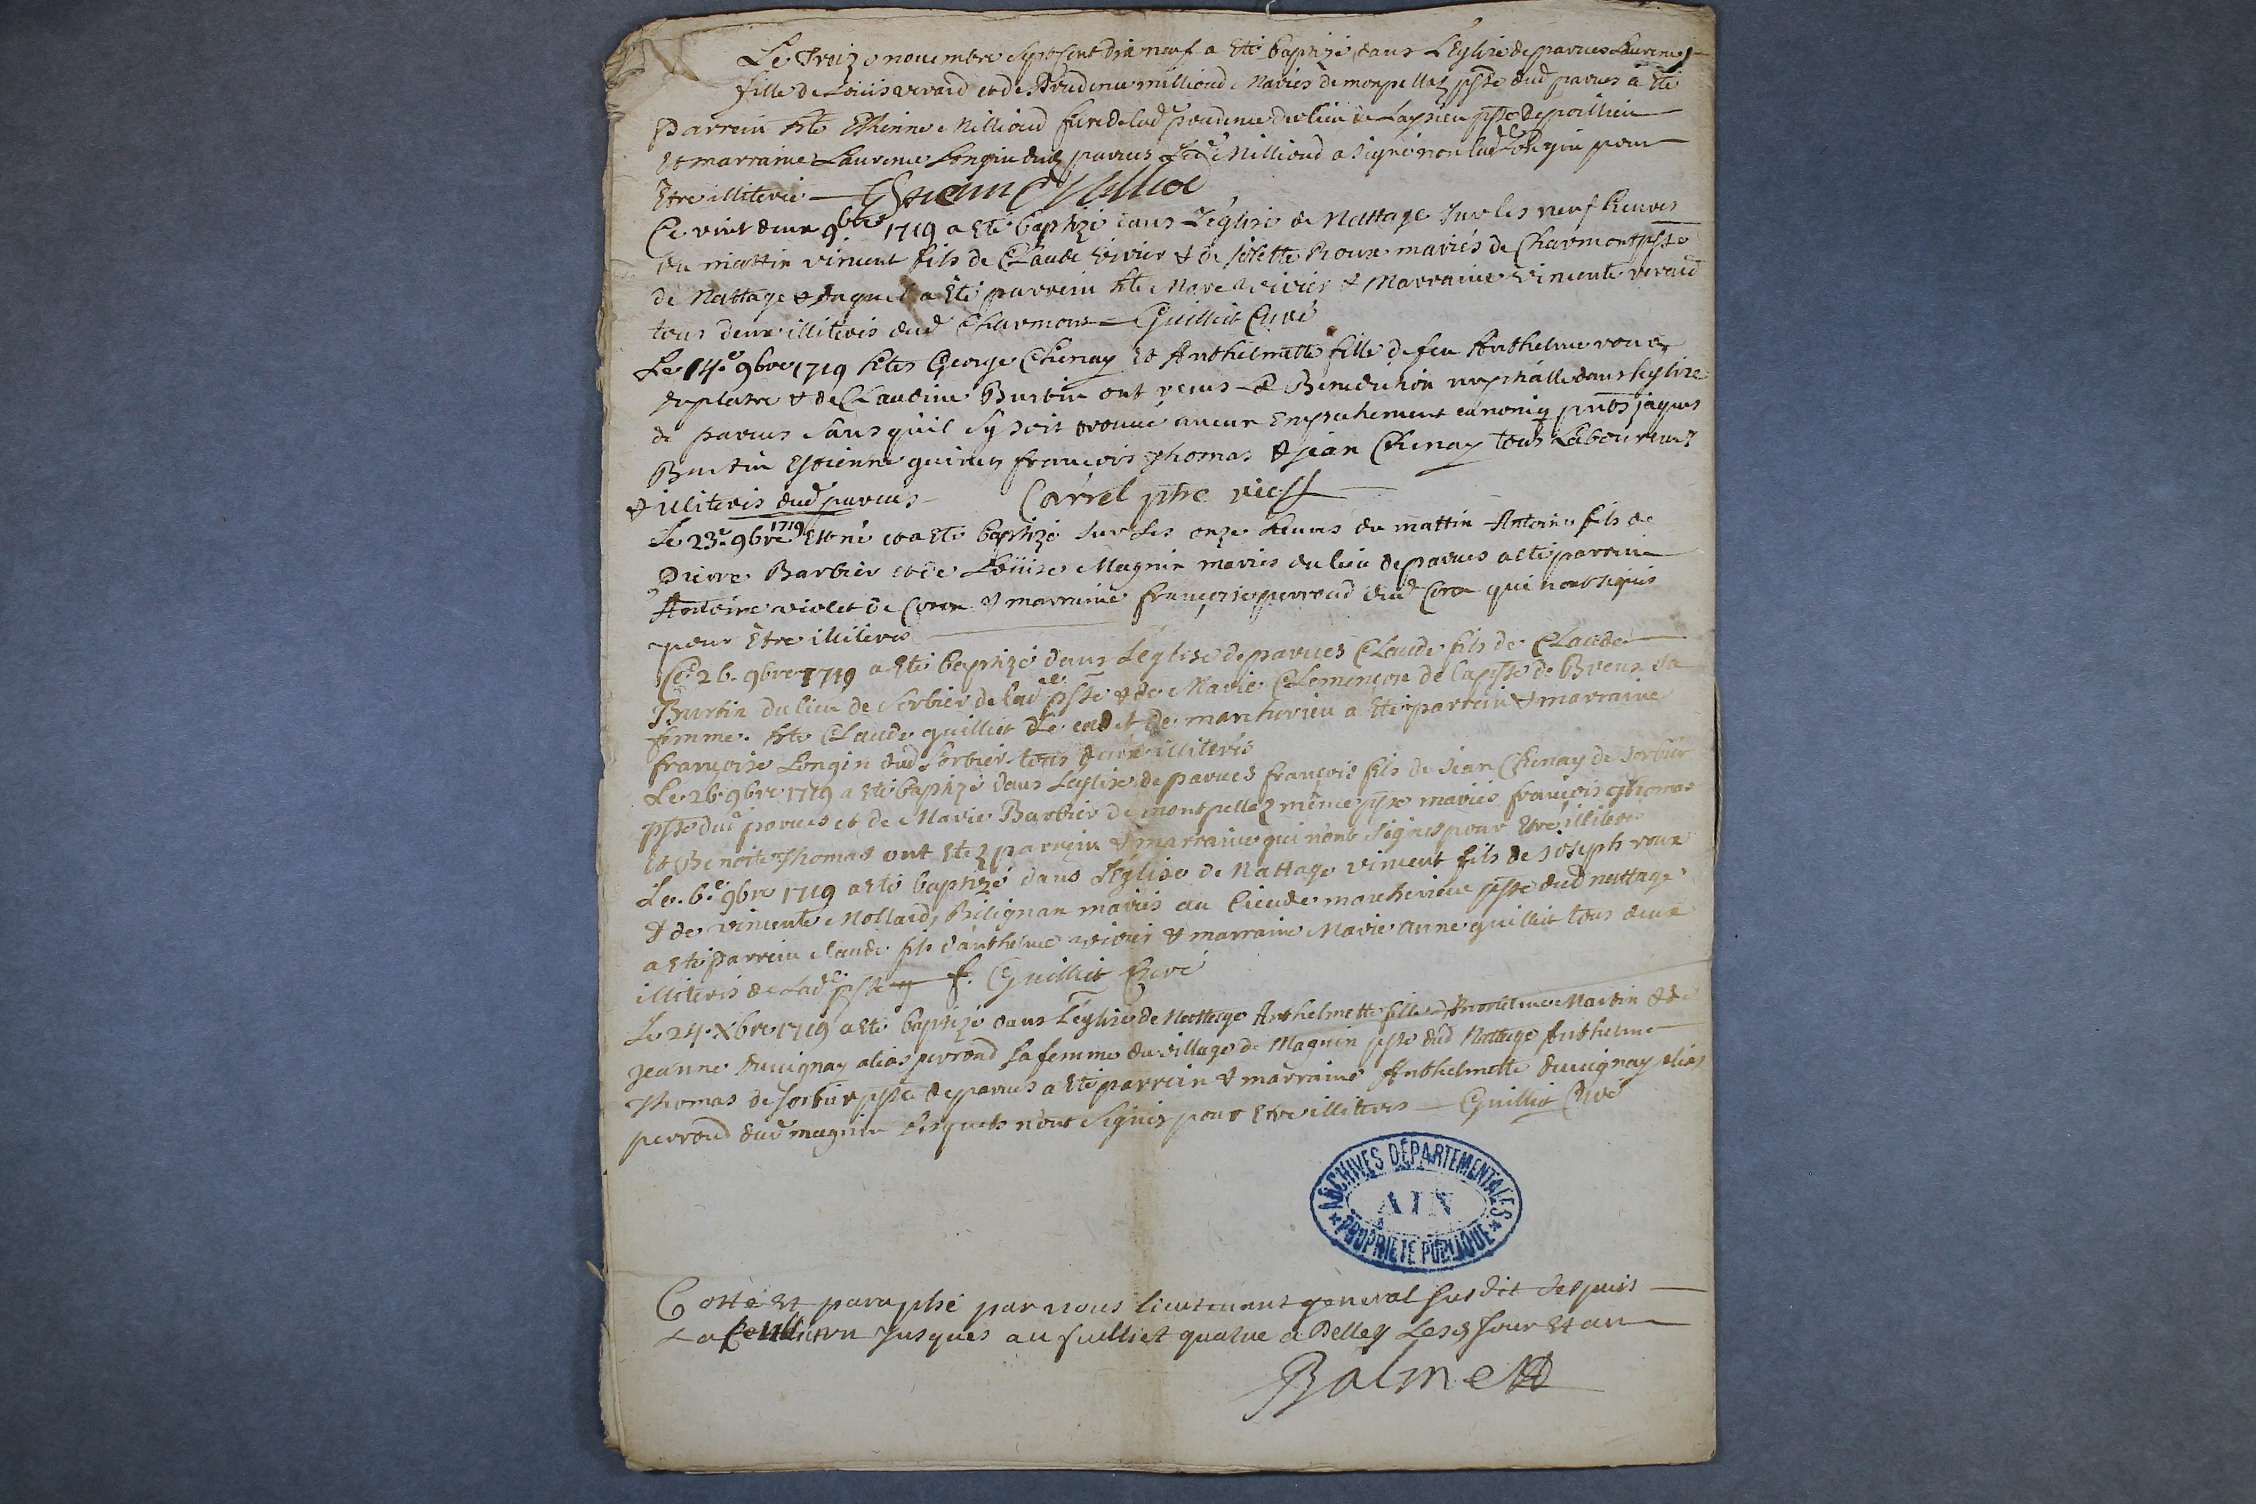 Le treize novembre sept cent dix neuf a Eté baptizé dans L'Eglise de parves Laurence
fille de Loüis verard et de Prudence millioud Mariés de monpellaz psse dud parves a Eté
parrein hte Ethienne Millioud frere de lad prudence du lieu de Laysieu psse de poillieu
et marraine Laurence Longin dud parves Led Millioud a signé non lad Longin pour
Etre illiterée
Ce vint deux 9bre 1719 a Eté baptizé dans L'église de Nattage sur les neuf heures
du mattin vincent fils de Claude vivier & de Roux mariés de Charmont psse
de Nattage & duquel a Eté parrein hte Marc vivier & Marraine vincente verard
tous deux illiterés dud Charmont Guilliet Curé
Le 14e 9bre 1719 htes George Chenay Et Anthelmette fille de feu Anthelme roux
& de Claudine Burtin ont receus La Benediction nuptialle dans l'eglise
de parves sans qu'il sy soit trouvé aucun Empechement canoniq pnts jaques
Burtin Estienne françois Thomas & jean Chenay tous Laboureurs
& illiterés dud parves Carrel ptre vic
Le 23e 9bre 1719 Est né et a Eté baptizé sur Les onze heures du mattin Antoine fils de
pierre Barbier et de Loüise Magnin mariés du lieu de parves a eté parrein
Antoine violet de Coron & marraine françoise perroud dud Coron qui n'ont signés
pour Etre illiterés
Ce 26. 9bre 1719 a Eté baptizé dans L'église de parves Claude fils de Claude
Burtin du lieu de Sorbier de lad psse & de Marie Clemençon de la psse de Brens sa
femme. hte Claude guilliet de marchurieu a Eté parrein & marraine
françoise Longin dud Sorbier tous deux illiterés
Le 26 9bre 1719 a Eté baptizé dans L'eglise de parves françois fils de Jean Chenay de sorbier
psse dud parves et de Marie Barbier de montpellaz même psse mariés françois Thomas
Et Benoite Thomas ont Etez parrein & marraine qui n'ont signés pour Etre illiterés
Le. 6e 9bre 1719 a Eté baptizé dans L'Eglise de Nattage vincent fils de joseph roux
& de vincente Mollard, mariés au Lieu de marcherieux psse dud nattage
a Eté parrein claude fils d'anthelme vivier & marraine Marie anne guilliet tous deux
illiterés de Lad psse f. Guilliet Curé
Le 24 Xbre 1719 a Eté baptizé dans L'église de Nattage Anthelmette fille d'Anthelme Martin & de
jeanne Duvignay alias perroud sa femme du village de Magnin psse dud Nattage Anthelme
Thomas de sorbier psse de parves a Eté parrein & marraine Anthelmette duvignay alias
perroud dud magnin Lesquels n'ont signés pour Etre illiteres Guilliet Curé
ARCHIVES DÉPARTEMENTALES
AIN
PROPRIÉTÉ PUBLIQUE
Cotté Et paraphé par nous lieutenant general susdit depuis
La jusques au fuilliet quatre a Belley Les jour Et an
Balme